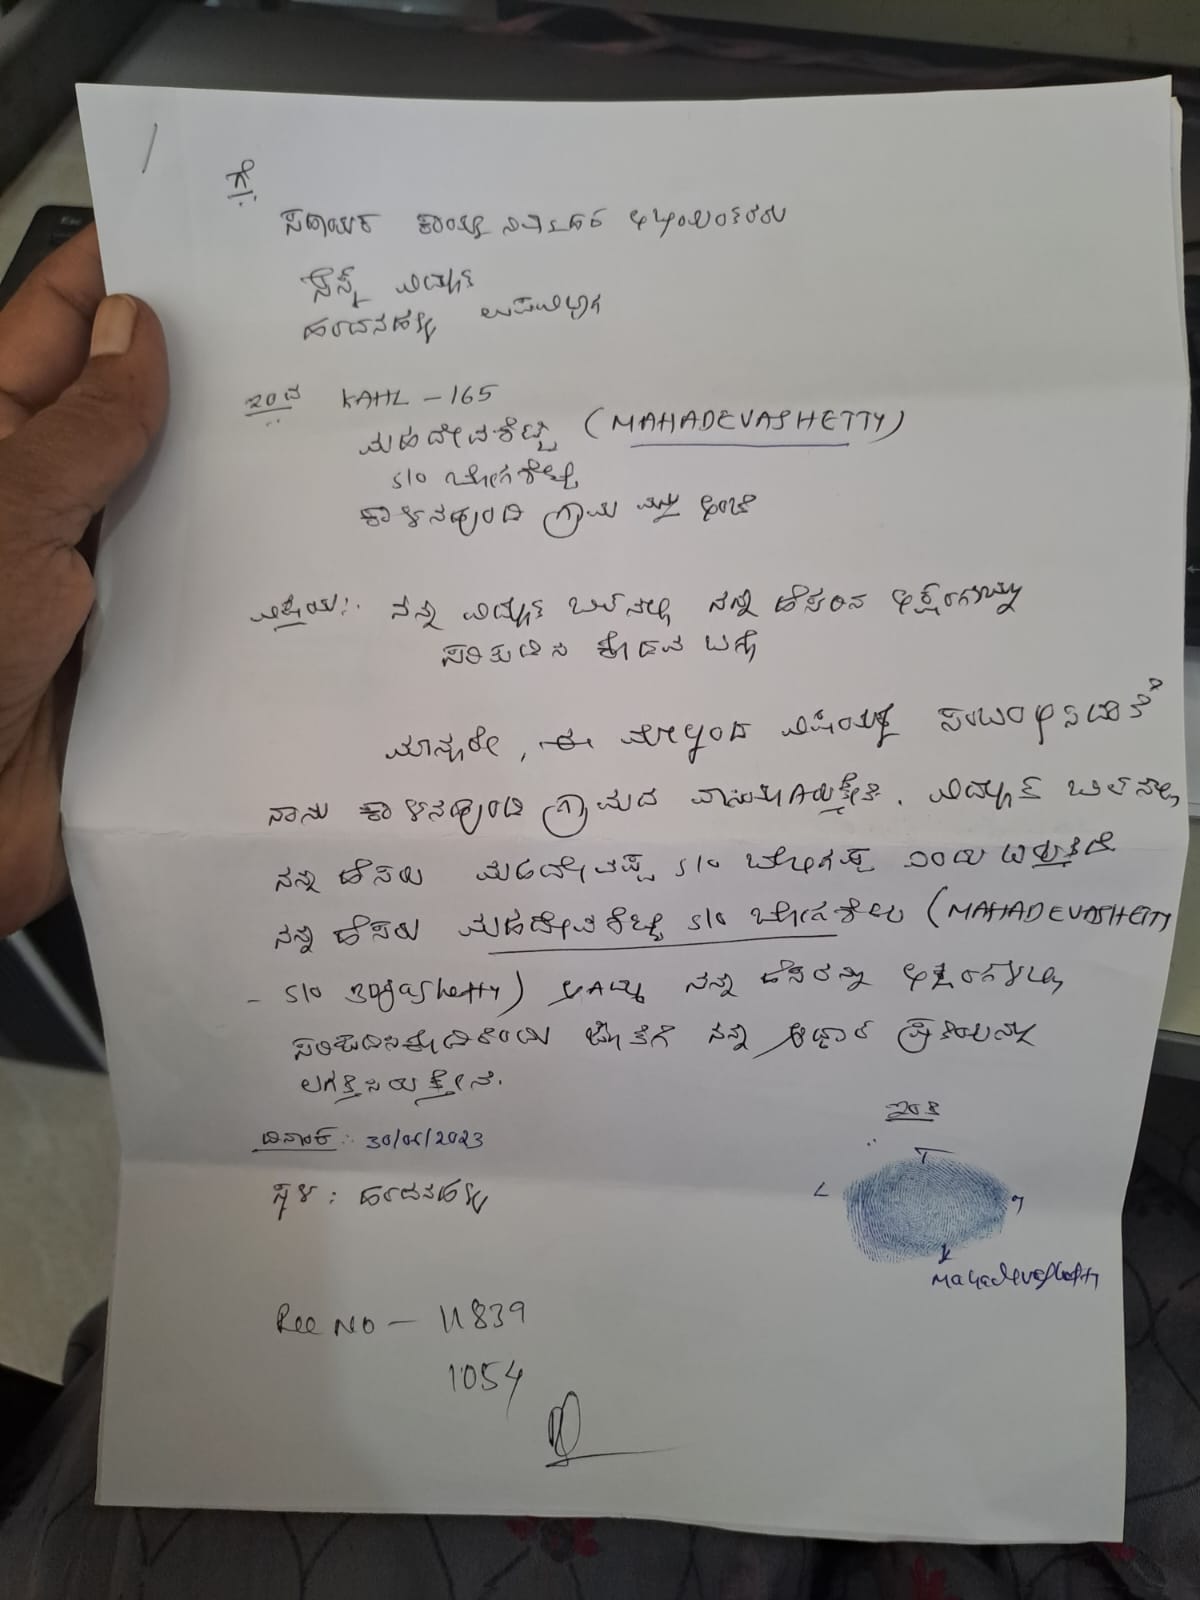 ಗೆ:
ಸಹಾಯಕ ಕಾರ್ಯನಿರ್ವಾಹಕ ಅಭಿಯಂತರರು
ಸೆಸ್ಕ್ ವಿದ್ಯುತ್
ಹರದನಹಳ್ಳಿ ಉಪವಿಭಾಗ
ಇಂದ KAHL - 165
ಮಹದೇವಶೆಟ್ಟಿ (MAHADEVASHETTY)
S/o ಬೋಗಶೆಟ್ಟಿ
ಕಾಳನಹುಂಡಿ ಗ್ರಾಮ ಮತ್ತು ಅಂಚೆ
ವಿಷಯ:. ನನ್ನ ವಿದ್ಯುತ್ ಬಿಲ್‌ನಲ್ಲಿ ನನ್ನ ಹೆಸರಿನ
ಸರಿಪಡಿಸಿ ಕೊಡುವ ಬಗ್ಗೆ
ಮಾನ್ಯರೇ, ಈ ಮೇಲ್ಕಂಡ ವಿಷಯಕ್ಕೆ ಸಂಬಂಧಿಸಿದಂತೆ
ನಾನು ಕಾಳನಹುಂಡಿ ಗ್ರಾಮದ ವಿದ್ಯುತ್ ಬಿಲ್‌ನಲ್ಲಿ
ನನ್ನ ಹೆಸರು ಮಹದೇವಪ್ಪ S/o ಎಂದು
ನನ್ನ ಹೆಸರು ಮಹದೇವಶೆಟ್ಟಿ S/o ಬೋಗಶೆಟ್ಟಿ (MAHADEVASHETTY
- S/o Bogashetty) ನನ್ನ ಹೆಸರನ್ನು
ಜೊತೆಗೆ ನನ್ನ ಆಧಾರ್ ಪ್ರತಿಯನ್ನು
ಲಗತ್ತಿಸಿರುತ್ತೇನೆ.
ದಿನಾಂಕ: 30/06/2023
ಸ್ಥಳ: ಹರದನಹಳ್ಳಿ
ಇಂತಿ
L T
Mahadevashetty
Ree NO - 11839
1054